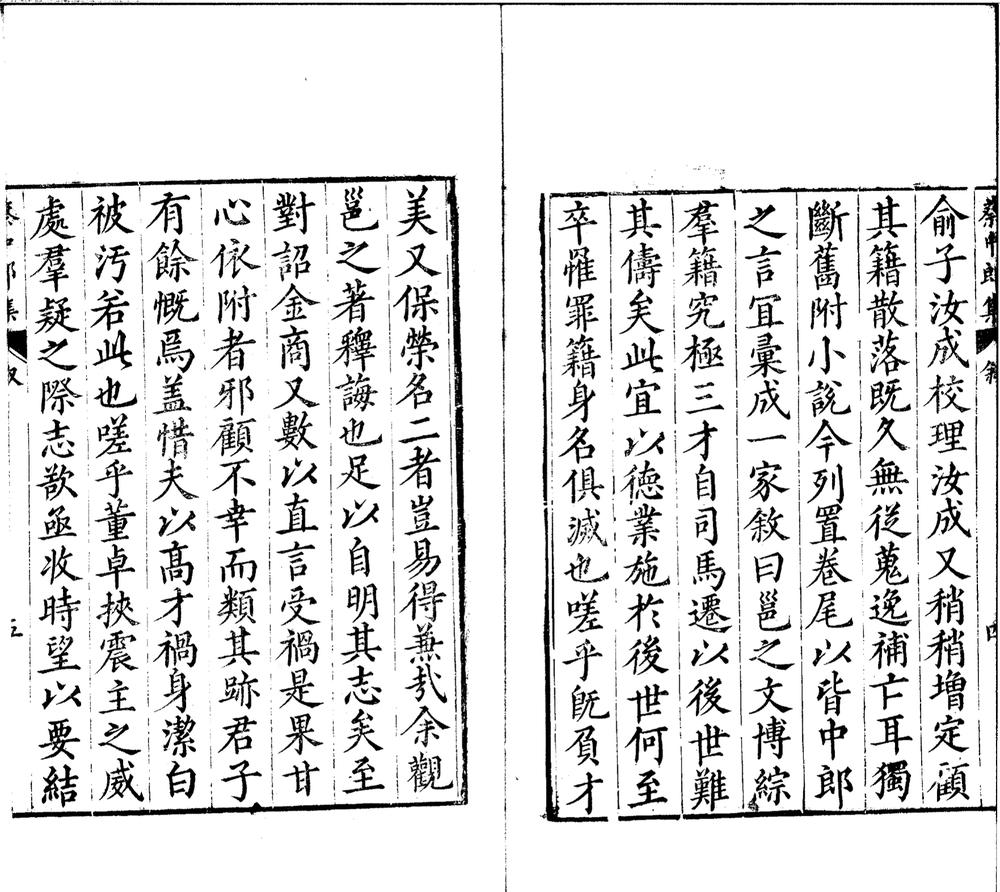 蔡中郎集 敘 四
俞子汝成校理汝成又稍稍增定顧
其籍散落既久無從蒐逸補亡耳獨
斷舊附小說今列置卷尾以皆中郎
之言冝彚成一家敘曰邕之文博綜
羣籍究極三才自司馬遷以後世難
其儔矣此宜以德業施於後世何至
卒罹罪籍身名俱滅也嗟乎旣負才
美又保榮名二者豈易得兼㢤余觀
邕之著釋誨也足以自明其志矣至
對詔金商又數以直言受禍是果甘
心依附者邪顧不幸而類其跡君子
有餘慨焉盖惜夫以髙才禍身潔白
被汚若此也嗟乎董卓挾震主之威
處羣疑之際志欲亟收時望以要結
蔡中郎集 叙 五